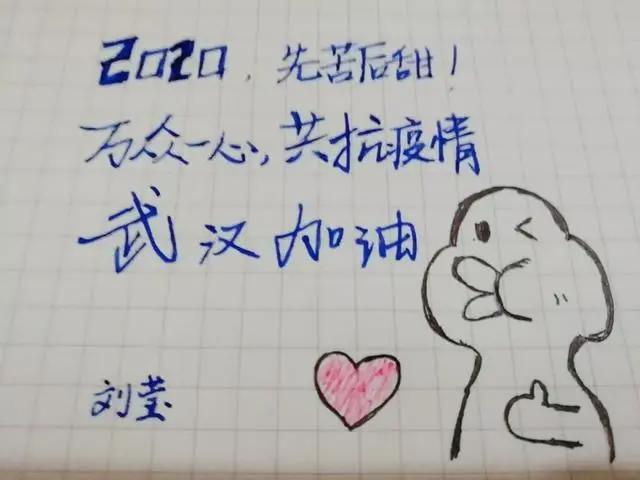 2020，先苦后甜！
万众一心，共抗疫情
武汉加油
刘莹